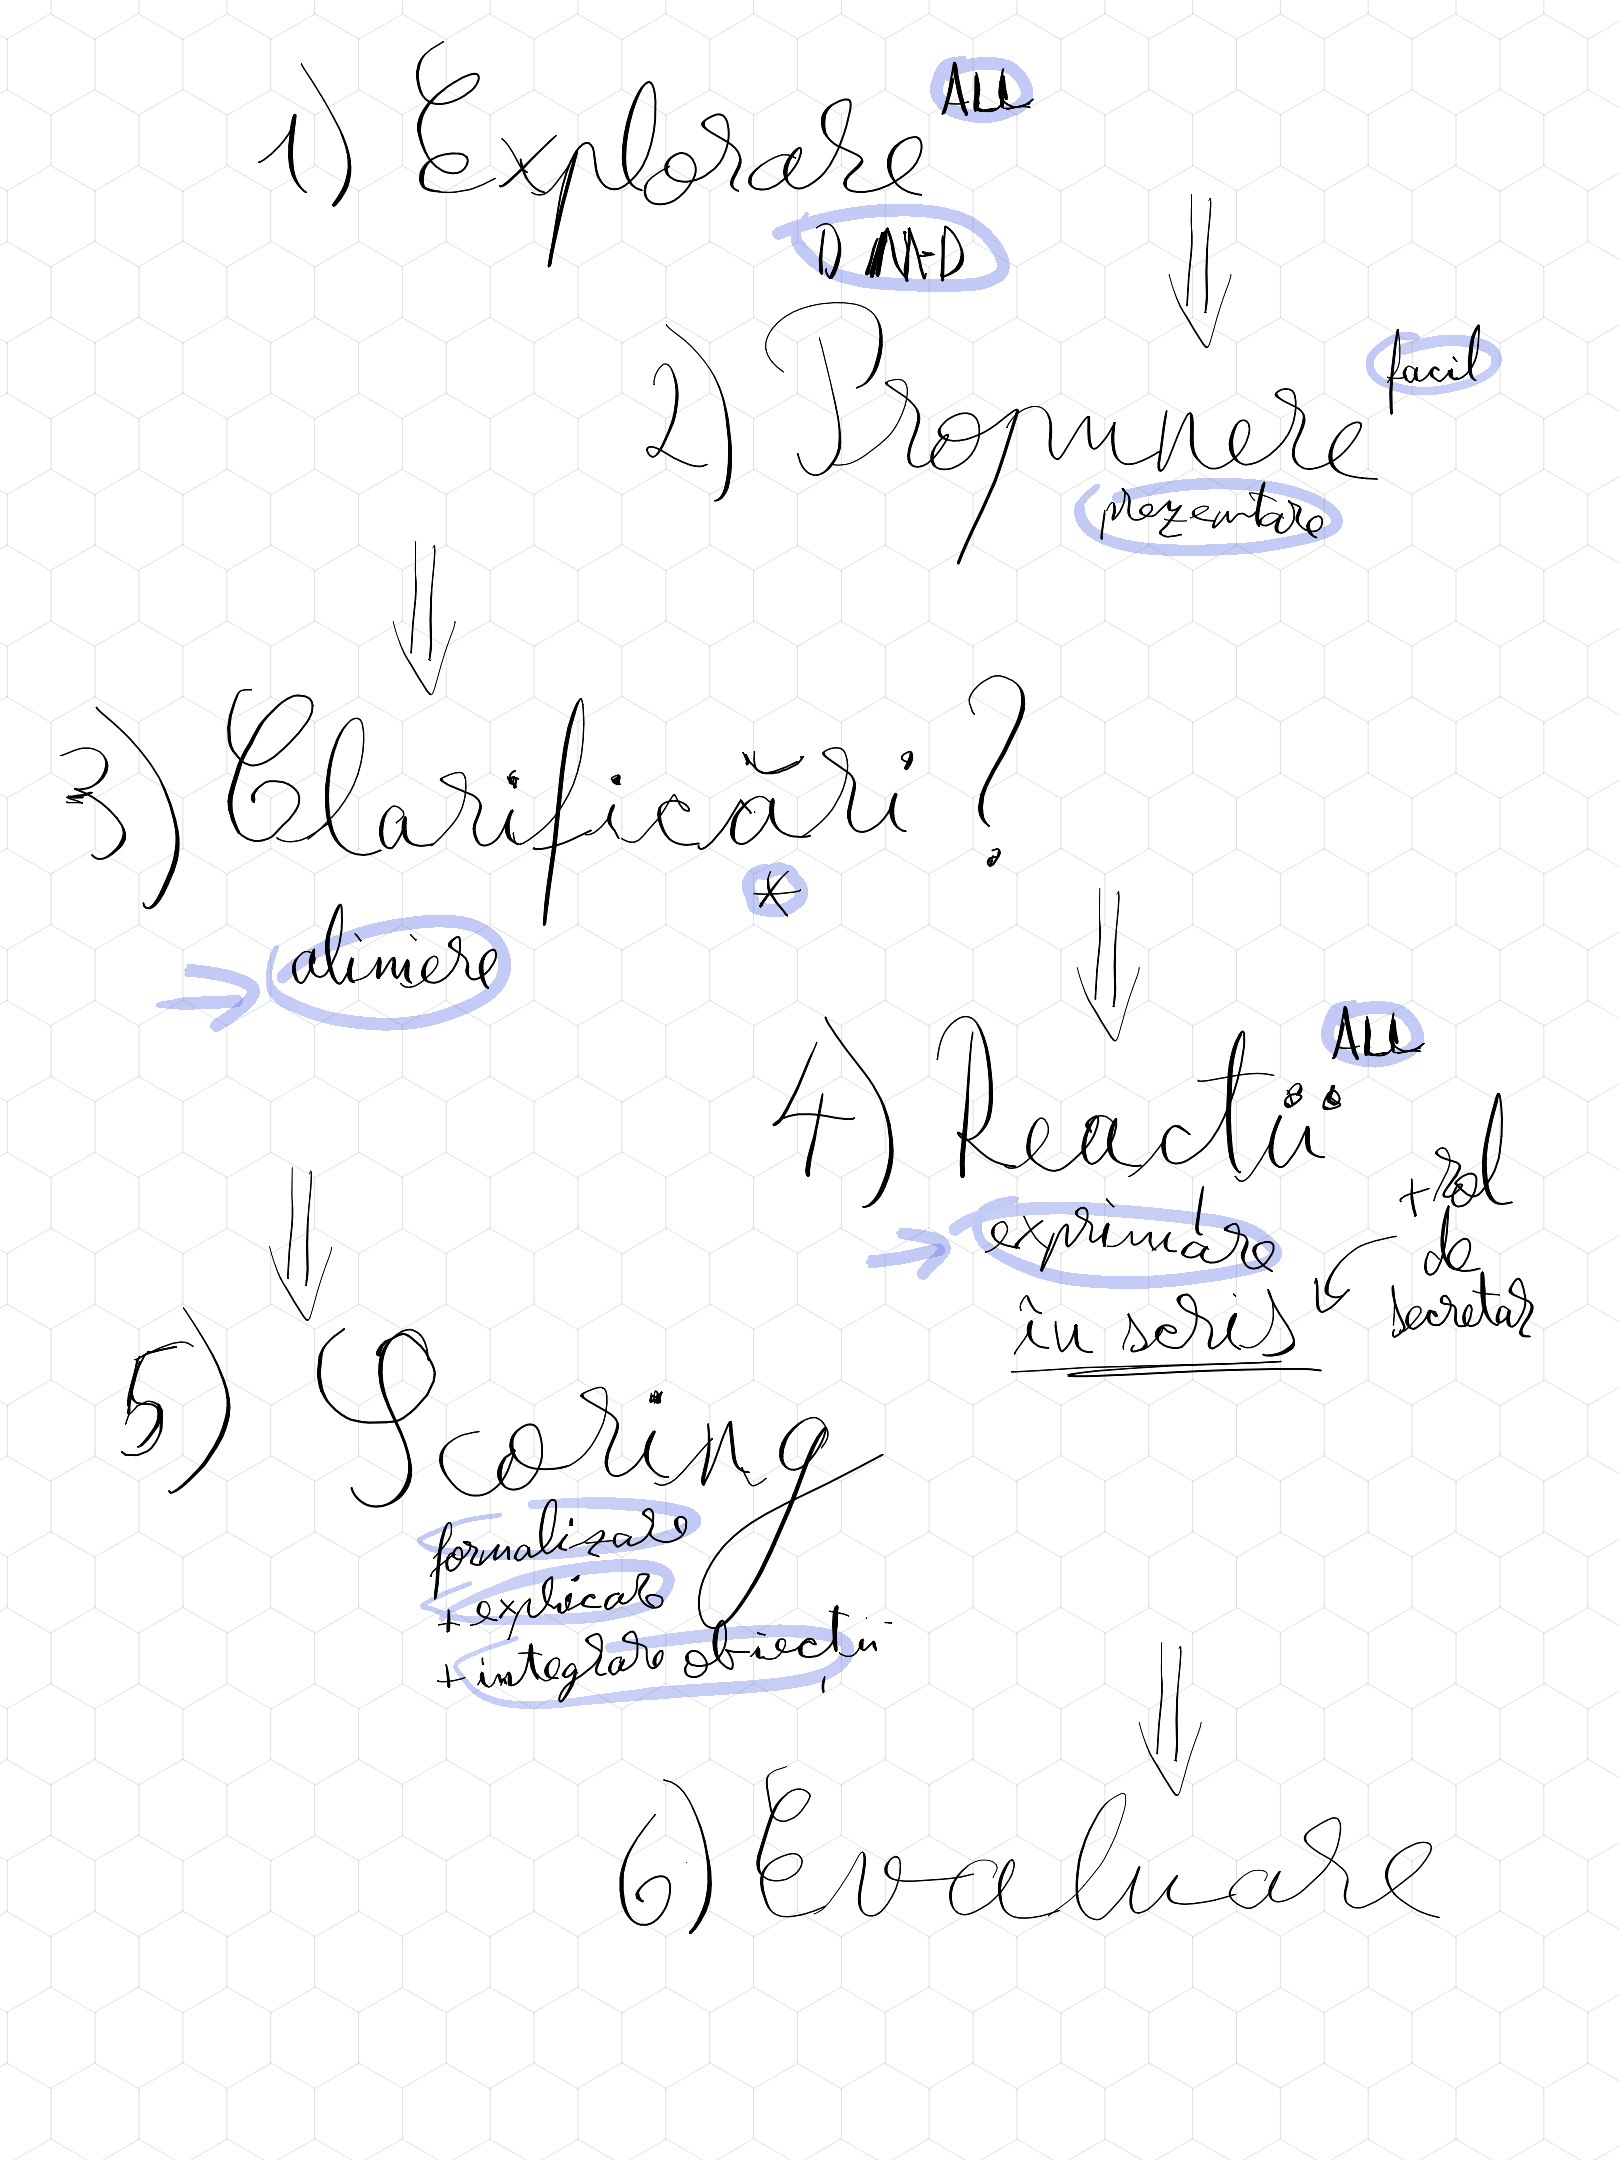 1) Explorare ALL
2) Propunere facil
prezentare
3) Clarificări ?
*
aliniere
4) Reactii ALL
exprimare
în scris
+ rol
de
secretar
5) Scoring
formalizare
+ explicare
+ integrare obiecții
6) Evaluare